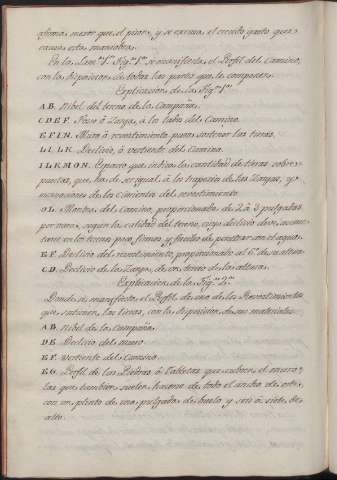 afirma mexor que el pison, y se escusa el crecido gasto que
causa esta maniobra.
En la Lam.ª 1.ª Fig.ª 1.ª se manifiesta el Perfil del Camino,
con la disposicion de todas las partes que le componen.
Explicacion de la Fig.ª 1.ª
A.B. Nibel del terreno de la Campaña.
C D E F. Foso ó Zanja, á los lados del Camino.
E F I N. Muro ó revestimiento para sostener las tierras.
L I. L K. Declivio, ó vertiente del Camino.
I L K M O N. Espacio que indica la cantidad de tierras sobre-
puestas, que ha de ser igual á los trapecios de las Zanjas, y ex-
cavaciones de los Cimientos del revestimiento.
O L. Montea del Camino, proporcionada de 2 á 3 pulgadas
por vara, segun la calidad del terreno, cuyo declivio debe aumen-
tarse en los terrenos poco firmes, y faciles de penetrar con el agua.
E F. Declivio del revestimiento, proporcionado al 6.º de su altura.
C D. Declivio de la Zanja, de un tercio de la altura.
Explicacion de la Fig.ª 2.ª
Donde se manifiesta el Perfil de uno de los Revestimientos
que sostienen las tierras, con la disposicion de sus materiales.
A B. Nibel de la Campaña.
D E. Declivio del muro.
E F. Vertiente del Camino.
E G. Perfil de las Piedras ó Tabletas que cubren el muro,
las que tambien suelen hacerse de todo el ancho de este,
con un plinto de una pulgada de buelo y seis ó siete de
alto.